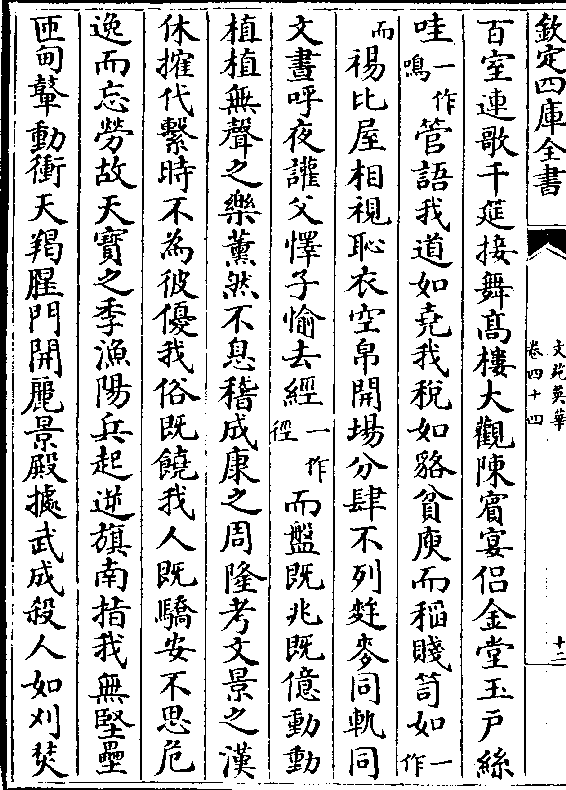 欽定四庫全書
文苑英華
卷四十四
十二
百室連歌千筵接舞髙樓大觀陳賓宴侣金堂玉戸絲
哇一作鳴管語我道如堯我税如貉貧庾而稻賤笥如一作
而裼比屋相視恥衣空帛開場分肆不列麰麥同軌同
文晝呼夜讙父懌子愉去經一作徑而盤既兆既億動動
植植無聲之樂薰然不息稽成康之周隆考文景之漢
休搉代繫時不為彼優我俗既饒我人既驕安不思危
逸而忘勞故天寳之季漁陽兵起逆旗南指我無堅壘
匝甸鼙動衝天羯腥門開麗景殿據武成殺人如刈焚